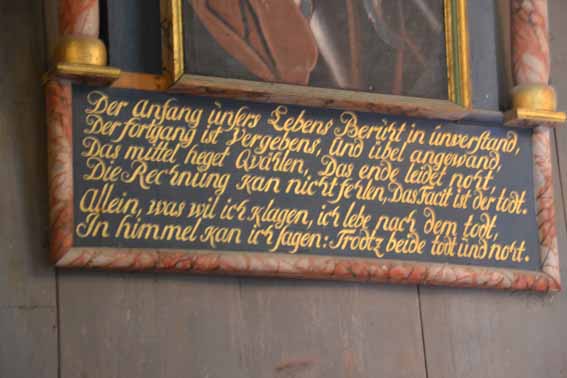 Der Anfang ünsers Lebens Berüht in ünverstand,
Der fortgang ist Vergebens, und übel angewand,
Das mittel heget Qvahlen, Das ende leidet noht,
Die Rechnung kan nicht fehlen, Das Facit ist der todt.
Allein, was wil ich klagen, ich lebe nach dem todt,
In himmel kan ich sagen: Trodtz beide todt ünd noht.